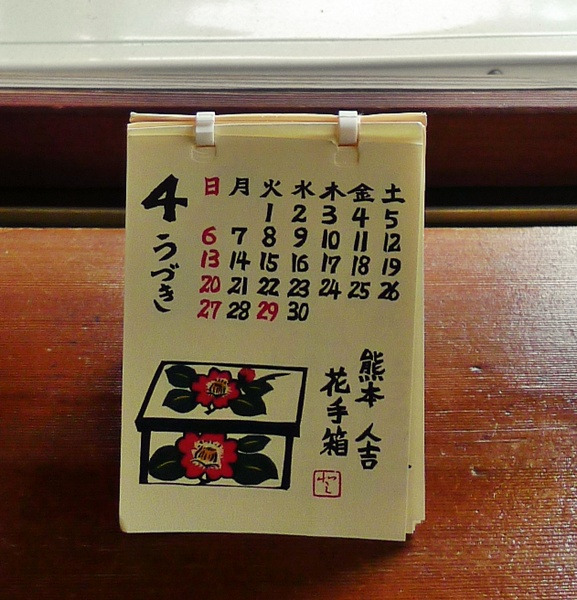 4 うづき
日 月 火 水 木 金 土
1 2 3 4 5
6 7 8 9 10 11 12
13 14 15 16 17 18 19
20 21 22 23 24 25 26
27 28 29 30
熊本 人吉
花手箱